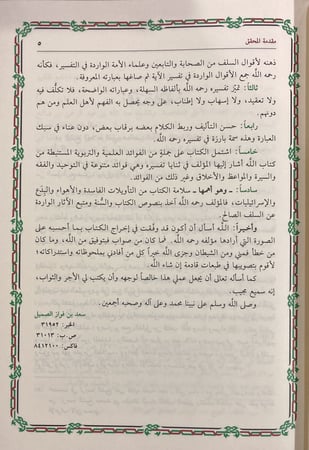 مقدمة المحقق
٥
ذهنه لأقوال السلف من الصحابة والتابعين وعلماء الأمة الواردة في التفسير، فكأنه
رحمه الله جمع الأقوال الواردة في تفسير الآية ثم صاغها بعبارته المعروفة.
ثالثاً: تميّز تفسيره رحمه الله بألفاظه السهلة، وعباراته الواضحة، فلا تكلّف فيه
ولا تعقيد، ولا إسهاب ولا إطناب، على وجه يحصل به الفهم لأهل العلم ومن هم
دونهم.
رابعاً: حسن التأليف وربط الكلام بعضه برقاب بعض، دون عناء في سبك
العبارة وهذه سمة بارزة في تفسيره رحمه الله.
خامساً: اشتمل الكتاب على جملةٍ من الفوائد العلمية والتربوية المستنبطة من
كتاب الله أشار إليها المؤلف في ثنايا تفسيره، وهي فوائد متنوعة في التوحيد والفقه
والسيرة والمواعظ والأخلاق وغير ذلك من الفوائد.
سادساً: ـ وهو أهمها ـ سلامة الكتاب من التأويلات الفاسدة والأهواء والبدع
والإسرائيليات، فالمؤلف رحمه الله أخذ بنصوص الكتاب والسُّنة ومتبع الآثار الواردة
عن السلف الصالح.
وأخيراً: الله أسأل أن أكون قد وفّقت في إخراج الكتاب بما أحسبه على
الصورة التي أرادها مؤلفه رحمه الله. فما كان من صواب فبتوفيق من الله، وما كان
من خطأ فمني ومن الشيطان وجزى الله خيراً كل من أفادني بملحوظاته واستدراكاته؛
لأقوم بتصويبها في طبعات قادمة إن شاء الله.
كما أسأله تعالى أن يجعل عملي هذا خالصاً لوجهه وأن يكتب في الأجر والثواب،
إنه سميع مجيب.
وصلى الله وسلم على نبينا محمد وعلى آله وصحبه أجمعين.
سعد بن فواز الصميل
الخبر: ٣١٩٥٢
ص.ب: ٣١٠١٣
فاكس: ٨٤١٢١٠٠